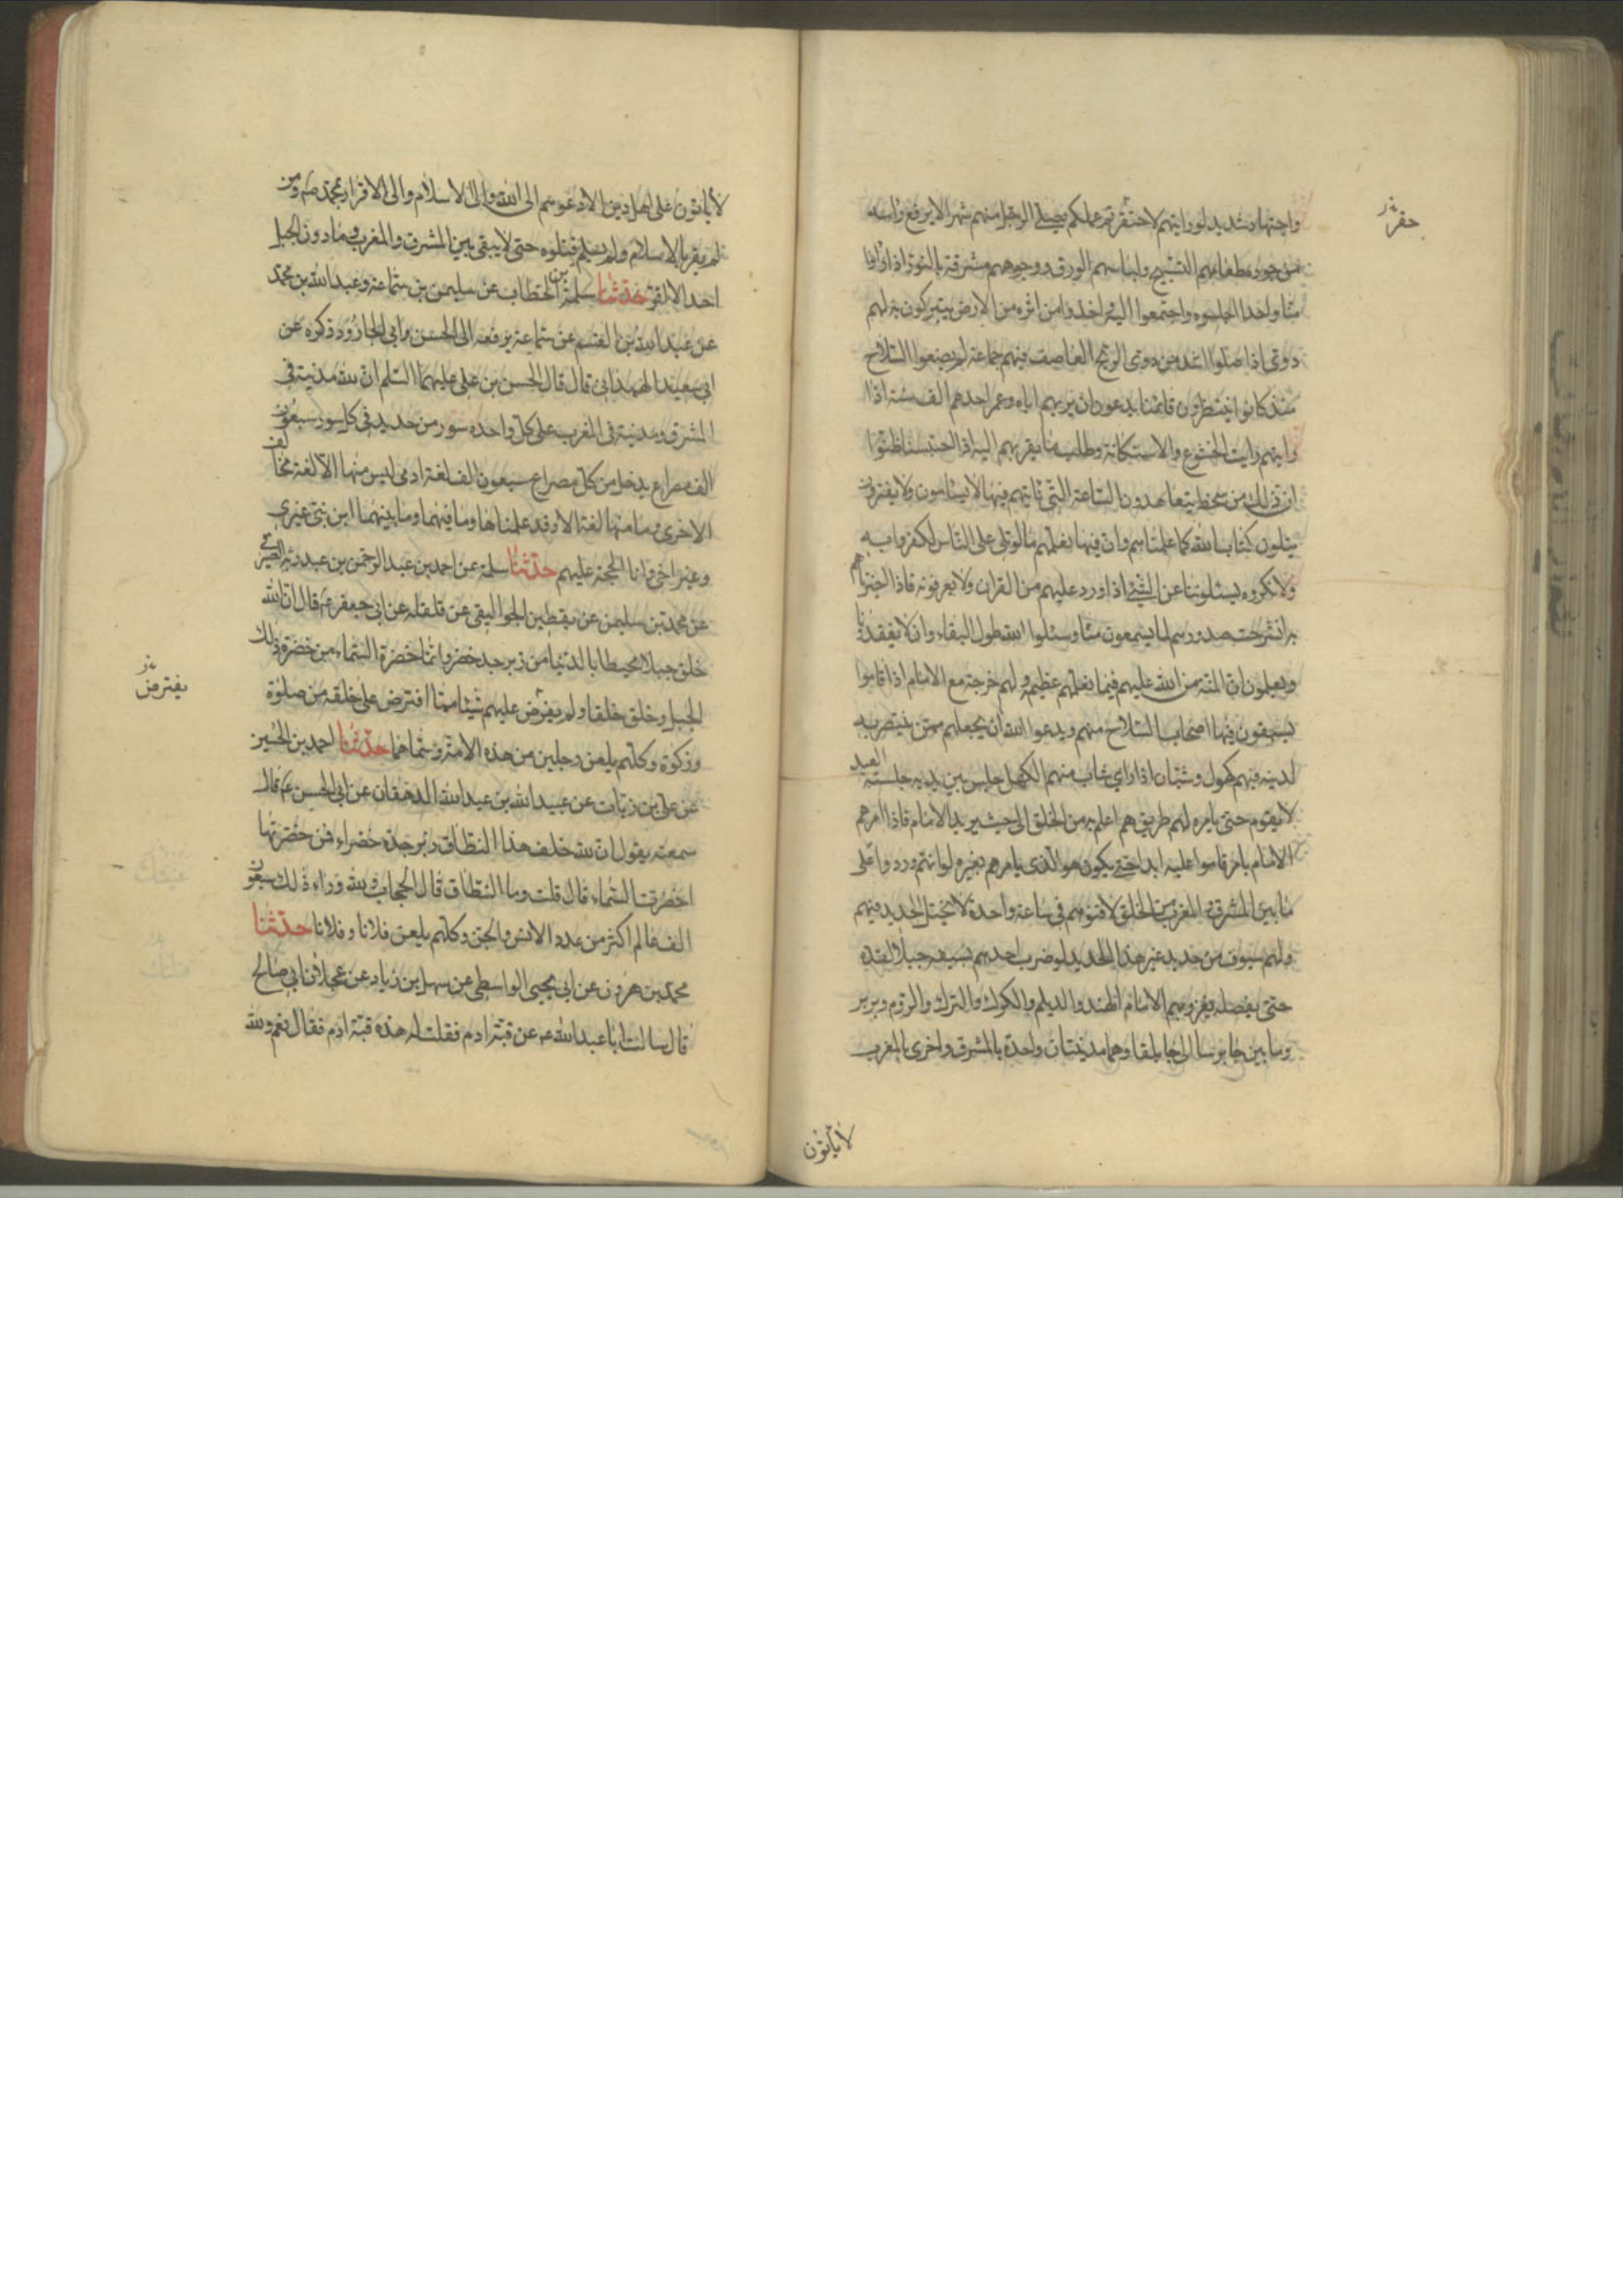 واجتهاد شديد لو رايتهم لاحتقرتم عملكم يصلي الرجل منهم شهرا لا يرفع راسه
من سجوده طعامهم التسبيح ولباسهم الورق ووجوههم مشرقة بالنور اذا راوا
منا واحدا لحسوه واجتمعوا اليه واخذوا من اثره من الارض يتبركون به لهم
دوي اذا صلوا اشد من دوي الريح العاصف فيهم جماعة لم يضعوا السلاح
منذ كانوا ينتظرون قائمنا يدعون ان يريهم اياه وعمر احدهم الف سنة اذا
رايتهم رايت الخشوع والاستكانة وطلب ما يقربهم اليه اذا احتبسنا ظنوا
ان ذلك من سخط يتعاهدون الساعة التي ناتيهم فيها لا يسامون ولا يفترون
يتلون كتاب الله كما علمناهم وان فيما نعلمهم ما لو تلي على الناس لكفروا به
ولانكروه يسئلوننا عن الشئ اذا ورد عليهم من القران ولا يعرفونه فاذا اخبرناهم
به انشرحت صدورهم لما يسمعون منا وسئلوا الله طول البقاء وان لا يفقدونا
ويعلمون ان المنة من الله عليهم فيما نعلمهم عظيمة ولهم خرجة مع الامام اذا قاموا
يسبقون فيها اصحاب السلاح منهم ويدعوا الله ان يجعلهم ممن ينتصر به
لدينه فيهم كهول وشبان اذا راى شاب منهم الكهل جلس بين يديه جلسة العبد
لا يقوم حتى يامره لهم طريق هم اعلم به من الخلق الى حيث يريد الامام فاذا امرهم
الامام بامر قاموا عليه ابدا حتى يكون هو الذي يامرهم بغيره لو انهم وردوا على
ما بين المشرق والمغرب من الخلق لافنوهم في ساعة واحدة لا يختل الحديد فيهم
ولهم سيوف من حديد غير هذا الحديد لو ضرب احدهم بسيفه جبلا لقده
حتى يفصله يغزو بهم الامام الهند والديلم والكرك والترك والروم وبربر
وما بين جابرسا الى جابلقا وهما مدينتان واحدة بالمشرق واخرى بالمغرب
لا ياتون
لا ياتون على اهل دين الا دعوهم الى الله والى الاسلام والى الاقرار بمحمد صم ومن
لم يقر بالاسلام ولم يسلم قتلوه حتى لا يبقى بين المشرق والمغرب وما دون الجبل
احد الا اقر حدثنا سلمة بن الخطاب عن سليمن بن سماعة وعبد الله بن محمد
عن عبد الله بن القسم عن سماعة يرفعه الى الحسن وابي الجارود ذكره عن
ابي سعيد الهمداني قال قال الحسن بن علي عليهما السلم ان لله مدنية في
المشرق ومدنية في المغرب على كل واحدة سور من حديد في كل سور سبعون
الف مصراع يدخل من كل مصراع سبعون الف لغة ادمي ليس منها الا لغة مخالف
الاخرى وما منها لغة الا وقد علمناها وما فيهما وما بينهما ابن نبي غيري
وغير اخي وانا الحجة عليهم حدثنا سلمة عن احمد بن عبد الرحمن بن عبد ربه الصيرفي
عن محمد بن سليمن عن يقطين الجواليقي عن قلقلة عن ابي جعفر عم قال ان الله
خلق جبلا محيطا بالدنيا من زبرجد خضر وانما خضرة السماء من خضرة ذلك
الجبل وخلق خلقا ولم يفرض عليهم شيئا مما افترض على خلقه من صلوة
وزكوة وكلهم يلعن رجلين من هذه الامة وسماهما حدثنا احمد بن الحسين
عن علي بن زيات عن عبيد الله بن عبد الله الدهقان عن ابي الحسن عم قال
سمعته يقول ان لله خلف هذا النطاق زبرجدة خضراء فمن خضرتها
اخضرت السماء قال قلت وما النطاق قال الحجاب ولله وراء ذلك سبعون
الف عالم اكثر من عدد الانس والجن وكلهم يلعن فلانا وفلانا حدثنا
محمد بن هرون عن ابي يحيى الواسطي عن سهل بن زياد عن عجلان ابي صالح
قال سالت ابا عبد الله عم عن قبة ادم فقلت له هذه قبة ادم فقال نعم ولله
يفترض